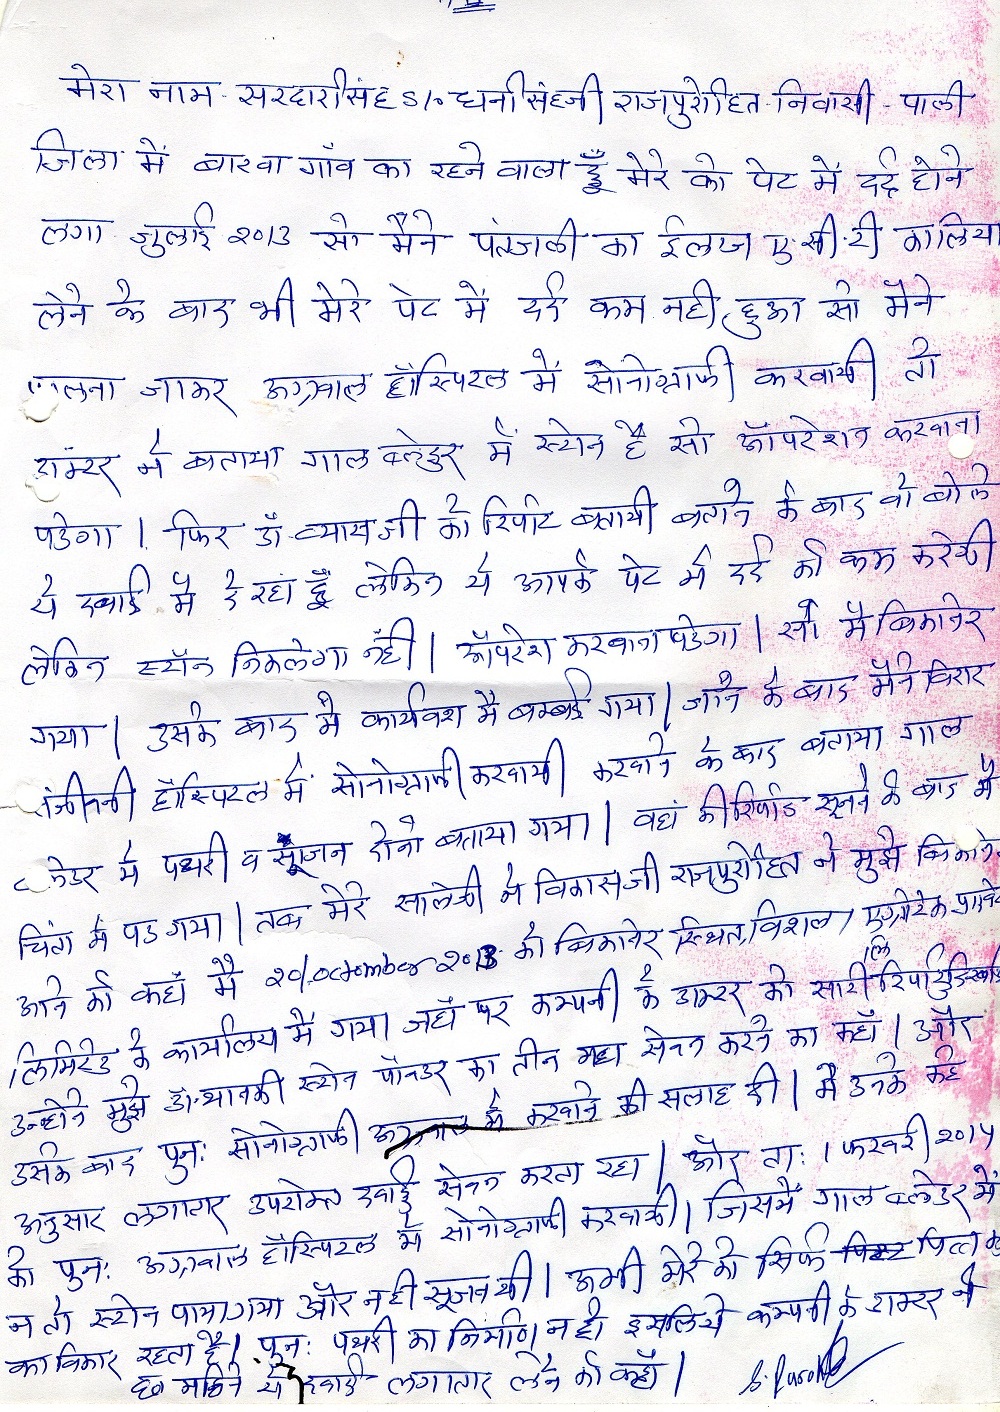 मेरा नाम - सरदारसिंह S/o धनसिंहजी राजपुरोहित - निवासी - पाली
जिला में बारवा गाँव का रहने वाला हूँ मेरे को पेट में दर्द होने
लगा जुलाई 2013 सो मैने पंतजली का ईलाज ए.सी.टी कालिया
लेने के बाद भी मेरे पेट में दर्द कम नही हुआ सो मैने
जाकर अग्रवाल हॉस्पिटल में सोनोग्राफी करवायी तो
डाक्टर ने बताया गाल ब्लेडर में स्टोन है सो ऑपरेशन करवाना
पडेगा । फिर डॉ व्यासजी को रिर्पोट बतायी बताने के बाद वो बोले
ये दवाई मैं दे रहा हूँ लेकिन ये आपके पेट में दर्द को कम करेगी
लेकिन स्टॉन निकलेगा नही । ऑपरेश करवाना पडेगा । सो मैं बिकानेर
गया । उसके बाद में कार्यवश मैं बम्बई गया । जाने के बाद मैने विरार
हॉस्पिटल में सोनोग्राफी करवायी करवाने के बाद बताया गाल
ब्लेडर में पथरी व सूजन दोनो बताया गया । वहां की रिर्पोट सुनने के बाद मैं
चिंता में पड गया । तब मेरे साले विकासजी राजपुरोहित ने मुझे बिकानेर
आने को कहाँ मैं 20/october 2013 को बिकानेर स्थित विशाल एग्रोटेक प्राइवेट
लिमिटेड के कार्यालय में गया जहाँ पर कम्पनी के डाक्टर को सारी रिर्पोट दिखाई
उन्होने मुझे डॉ. थानकी स्टोन पॉवडर का तीन माह सेवन करने का कहाँ । और
उसके बाद पुन: सोनोग्राफी करवाने की सलाह दी । मैं उनके कहे
अनुसार लगातार उपरोक्त दवाई सेवन करता रहा । और ता: 1 फरवरी 2014
को पुन: अग्रवाल हॉस्पिटल में सोनोग्राफी करवायी । जिसमें गाल ब्लेडर में
न तो स्टोन पाया गया और नही सूजन थी । अभी मेरे को सिर्फ पित्त
का विकार रहता है । पुन: पथरी का निर्माण न हो इसलिये कम्पनी के डाक्टर ने
छ: महिने ये दवाई लगातार लेने को कहाँ ।